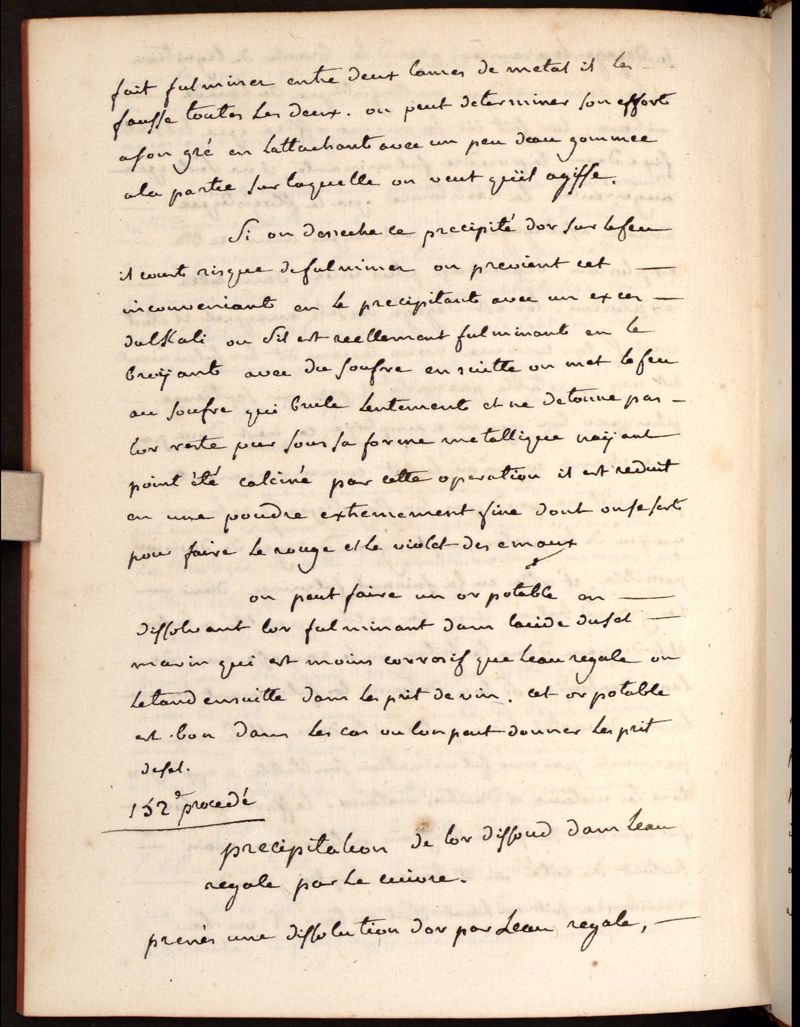 fait fulminer entre deux lames de metal il les
fausse toutes les deux. on peut determiner son effort
a son gré en lattachant avec un peu deau gommee
a la partie sur laquelle on veut quil agisse.
Si on desseche ce precipité dor sur le feu
il court risque de fulminer on previent cet —
inconveniant en le precipitant avec un exces —
dalkali ou sil est reellement fulminant en le
broÿant avec du soufre en suitte on met le feu
au soufre qui brule lentement et ne detonne pas —
lor reste pur sous sa forme metallique naÿant
point été calciné par cette operation il est reduit
en une poudre extremement fine dont on se sert
pour faire le rouge et le violet des emaux
on peut faire un or potable en —
dissolvant lor fulminant dans lacide du sel —
marin qui est moins corrosif que leau regale on
letand ensuitte dans lesprit de vin. cet or potable
est bon dans les cas ou lon peut donner lesprit
de sel.
152e procedé
precipitation de lor dissoud dans leau
regale par le cuivre.
prenés une dissolution dor par leau regale, —